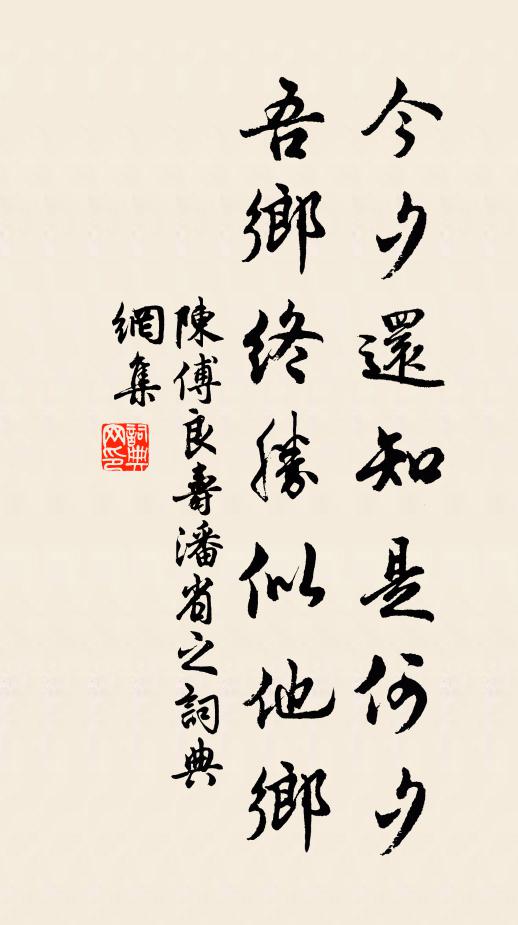 今夕還知是何夕
吾鄉終勝似他鄉
陳傅良壽潘省之詞典
網集
詞典網印